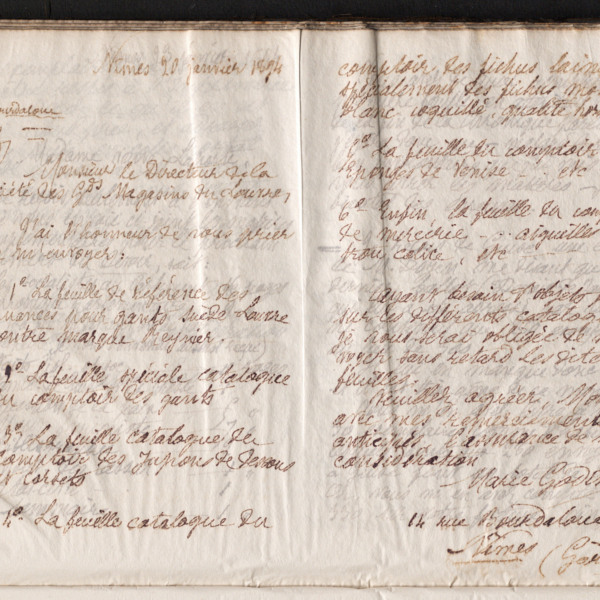 Nîmes 20 janvier 1894
Bourdaloue
Monsieur le Directeur de la
été des Gds Magasins du Louvre,
J'ai l'honneur de vous prier
m'envoyer:
1º La feuille de référence des
nuances pour gants Suède-Louvre
contre marque Reynier.
2º La feuille spéciale catalogue
du comptoir des gants
3º La feuille catalogue du
comptoir des Jupons de dessous
et corsets
4º La feuille catalogue du
comptoir des fichus laine
spécialement des fichus
blanc coquillé, qualité
5º La feuille du comptoir
Eponges de Venise - etc
6º Enfin, la feuille du
de mercerie - aiguilles
etc
ayant besoin d'objets
sur les différents
je vous serai obligée de
sans retard les dites
feuilles.
Veuillez agréer,
avec mes remerciements
anticipés, l'assurance de
considération
Marie
14 rue Bourdaloue
Nîmes